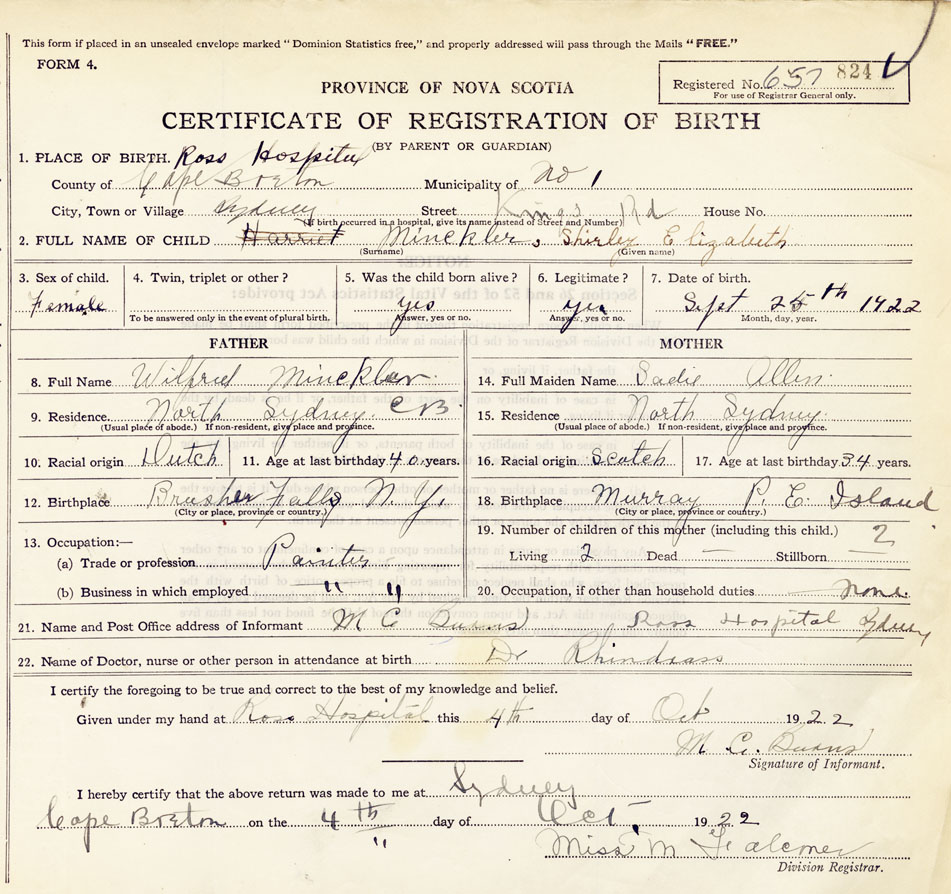 This form if placed in an unsealed envelope marked "Dominion Statistics free," and properly addressed will pass through the Mails "FREE."
FORM 4.
Registered No. 657 824
For use of Registrar General only.
PROVINCE OF NOVA SCOTIA
CERTIFICATE OF REGISTRATION OF BIRTH
(BY PARENT OR GUARDIAN)
1. PLACE OF BIRTH. Ross Hospital
County of Cape Breton Municipality of No 1
City, Town or Village Sydney Street Kings Rd House No.
(If birth occurred in a hospital, give its name instead of Street and Number)
2. FULL NAME OF CHILD Harriet Minckler, Shirley Elizabeth
(Surname) (Given name)
3. Sex of child. 4. Twin, triplet or other? 5. Was the child born alive? 6. Legitimate? 7. Date of birth.
Female yes yes Sept 25th 1922
To be answered only in the event of plural birth. Answer, yes or no. Answer, yes or no. Month, day, year.
FATHER MOTHER
8. Full Name Wilfrid Minckler 14. Full Maiden Name Sadie Allen
9. Residence. North Sydney. C B. 15. Residence North Sydney.
(Usual place of abode.) If non-resident, give place and province. (Usual place of abode.) If non-resident, give place and province.
10. Racial origin Dutch 11. Age at last birthday 40 years. 16. Racial origin Scotch 17. Age at last birthday 34 years.
12. Birthplace Brasher Falls N. Y. 18. Birthplace Murray P. E. Island
(City or place, province or country.) (City or place, province or country.)
19. Number of children of this mother (including this child.) 2
13. Occupation:—
(a) Trade or profession Painter Living 2 Dead — Stillborn —
(b) Business in which employed " " 20. Occupation, if other than household duties None.
21. Name and Post Office address of Informant M C Burns Ross Hospital Sydney
22. Name of Doctor, nurse or other person in attendance at birth Dr
I certify the foregoing to be true and correct to the best of my knowledge and belief.
Given under my hand at Ross Hospital this 4th day of Oct 1922
M C. Burns
Signature of Informant.
I hereby certify that the above return was made to me at Sydney
Cape Breton on the 4th day of Oct. 1922
"
Miss M Falconer
Division Registrar.